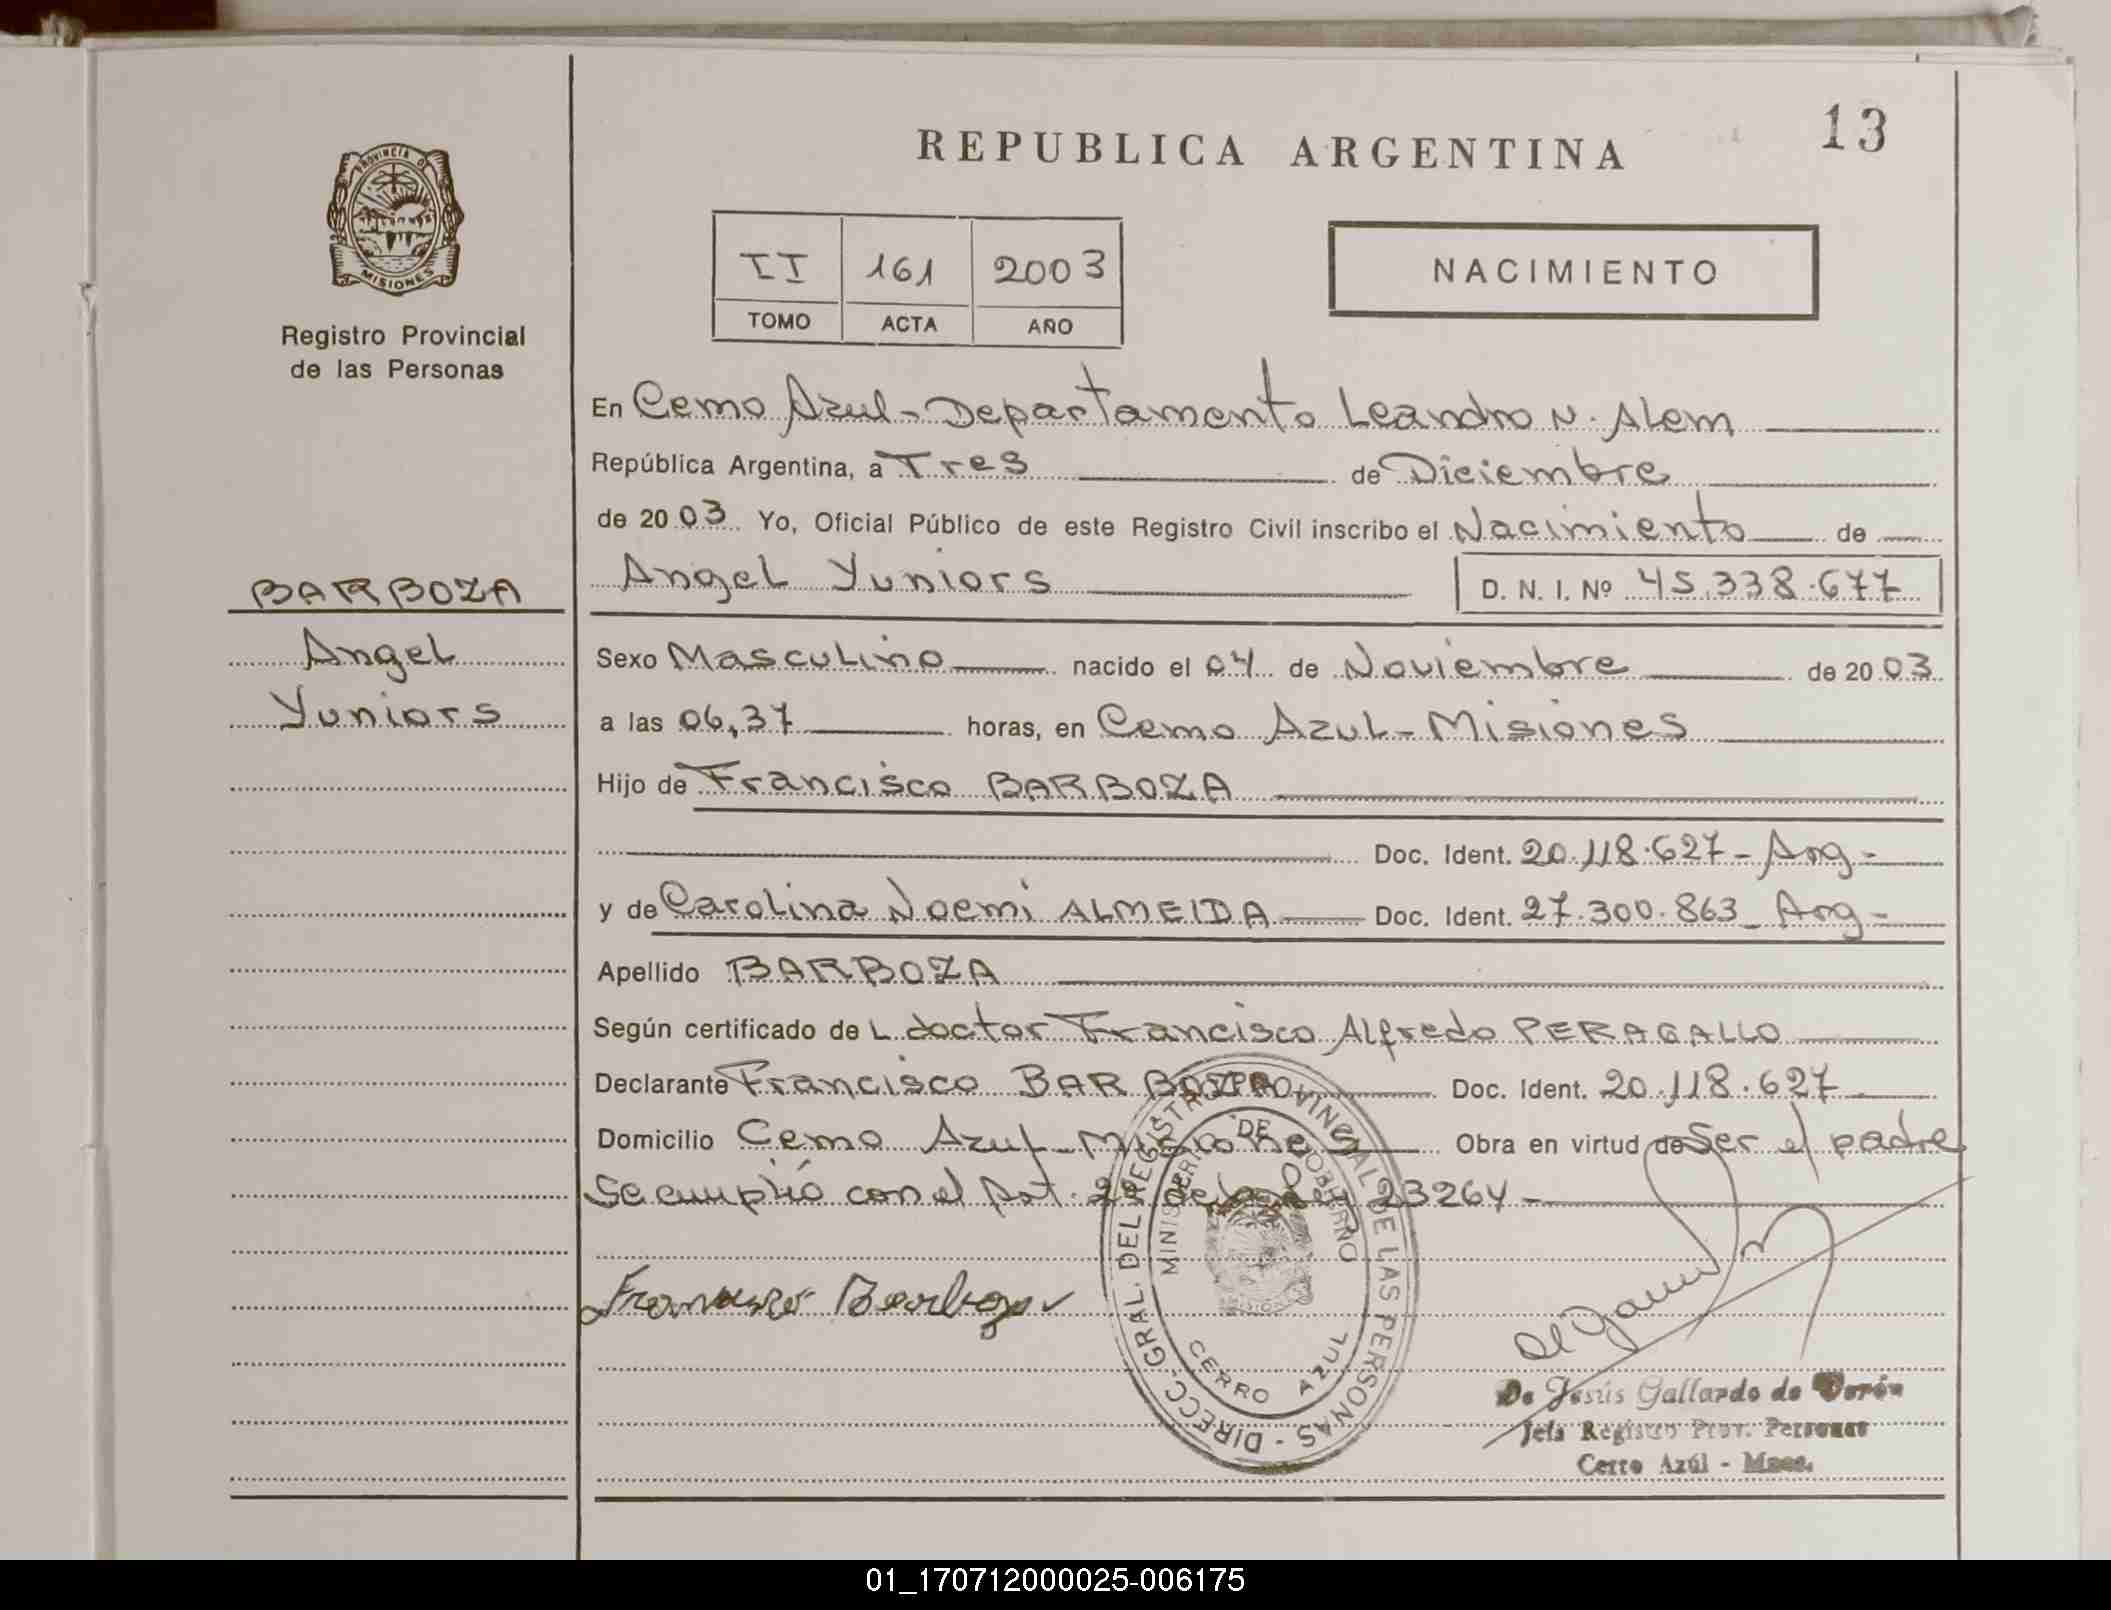 13
REPUBLICA ARGENTINA
PROVINCIA DE
MISIONES
Registro Provincial
de las Personas
II 161 2003
TOMO ACTA AÑO
NACIMIENTO
En Cerro Azul - Departamento Leandro N. Alem
República Argentina, a Tres de Diciembre
de 2003 Yo, Oficial Público de este Registro Civil inscribo el Nacimiento de
BARBOZA
Angel Yuniors D. N. I. Nº 45.338.677
Angel
Sexo Masculino nacido el 04 de Noviembre de 2003
Yuniors
a las 06,37 horas, en Cerro Azul - Misiones
Hijo de Francisco BARBOZA
Doc. Ident. 20.118.627 - Arg -
y de Carolina Noemi ALMEIDA Doc. Ident. 27.300.863 - Arg -
Apellido BARBOZA
Según certificado de L doctor Francisco Alfredo PERAGALLO
Declarante Francisco BARBOZA Doc. Ident. 20.118.627
Domicilio Cerro Azul - Misiones Obra en virtud de Ser el padre
Se cumplió con el Art. 2º de la Ley 23264 -
Francisco Barboza
DIRECC. GRAL. DEL REGISTRO PROVINCIAL DE LAS PERSONAS -
MINISTERIO DE GOBIERNO
CERRO AZUL
De Jesús Gallardo de
Jefa Registro Prov. Personas
Cerro Azúl - Mnes.
01_170712000025-006175